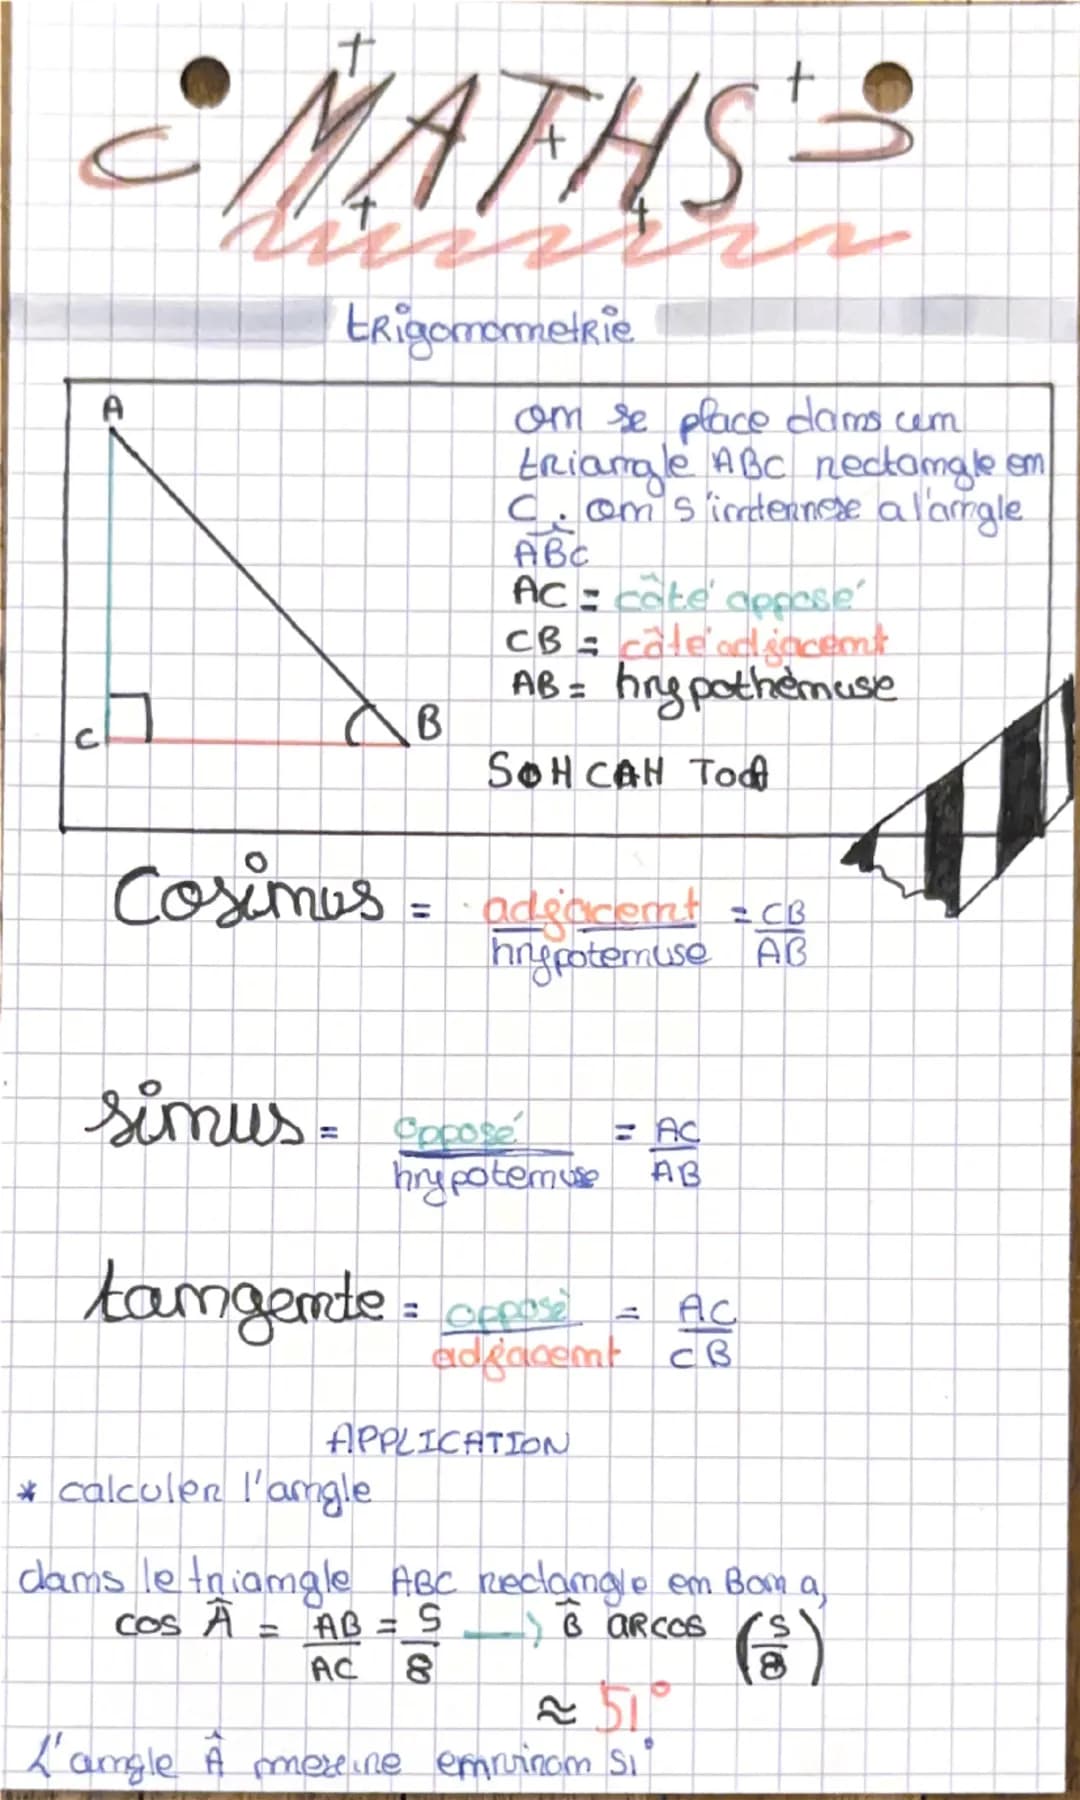 MATHS
trigonometrie
A
on se place dans un
triangle ABC rectangle en
C. on s'interresse a l'angle
ABC
AC = côté opposé
CB = côté adjacent
AB = hypothènuse
C
B
SOH CAH TOA
Cosinus = adjacent = CB
hypotenuse AB
sinus = opposé = AC
hypotenuse AB
tangente = opposé = AC
adjacent CB
APPLICATION
* calculer l'angle
dans le triangle ABC rectangle en B on a,
cos Â = AB = 5 → B̂ arcos (5
AC 8 8)
≈ 51°
L'angle Â mesure environ 51°